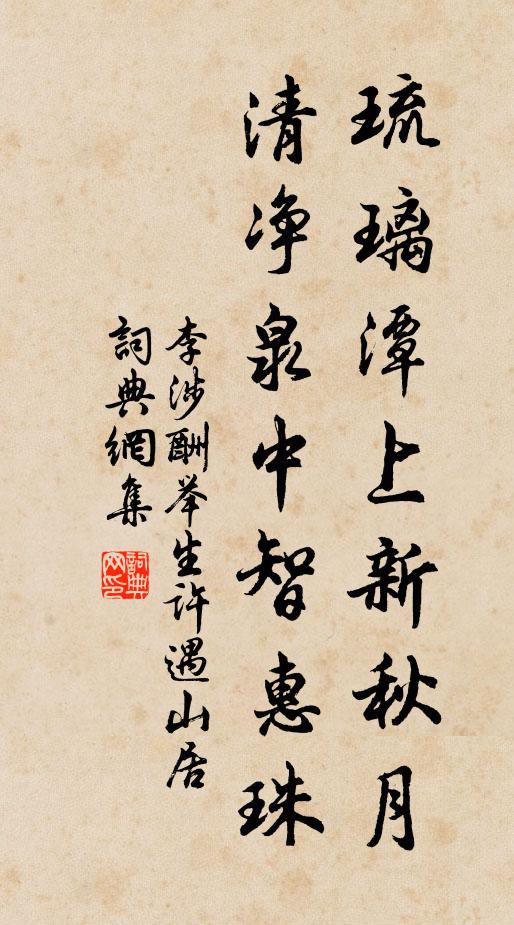 琉璃潭上新秋月
清净泉中智惠珠
李涉酬举生许遇山居
詞典網集
詞典
网印